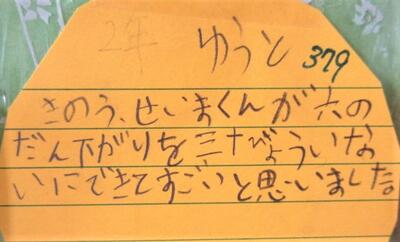 2年 ゆうと 379
きのう、せいまくんが六の
だん下がりを三十びょういな
いにできてすごいと思いました。